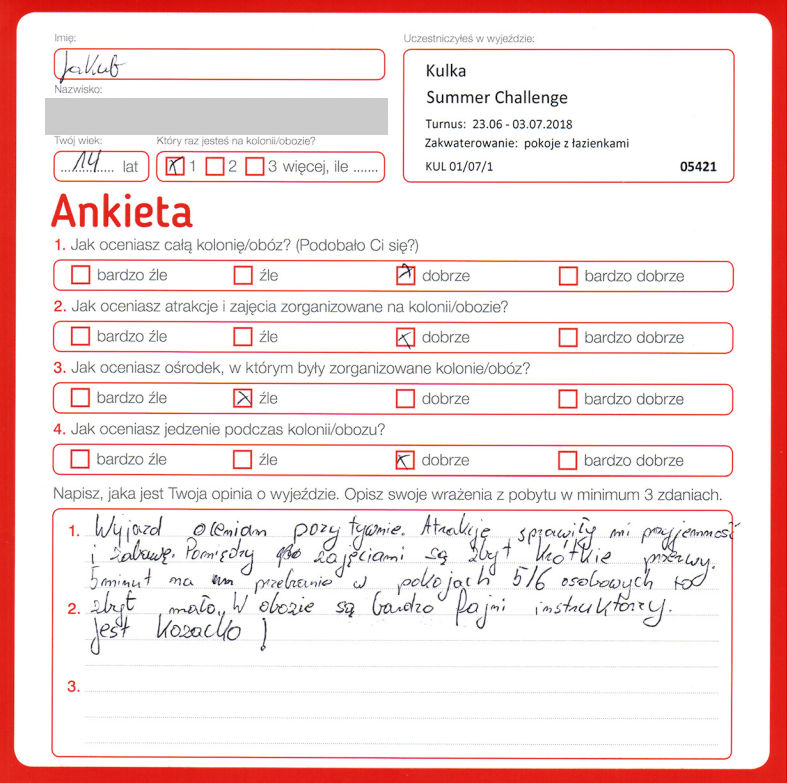 Imię:
Jakub
Nazwisko:
Twój wiek:
14 lat
Który raz jesteś na kolonii/obozie?
1 2 3 więcej, ile .......
Uczestniczyłeś w wyjeździe:
Kulka
Summer Challenge
Turnus: 23.06 - 03.07.2018
Zakwaterowanie: pokoje z łazienkami
KUL 01/07/1 05421
Ankieta
1. Jak oceniasz całą kolonię/obóz? (Podobało Ci się?)
bardzo źle źle dobrze bardzo dobrze
2. Jak oceniasz atrakcje i zajęcia zorganizowane na kolonii/obozie?
bardzo źle źle dobrze bardzo dobrze
3. Jak oceniasz ośrodek, w którym były zorganizowane kolonie/obóz?
bardzo źle źle dobrze bardzo dobrze
4. Jak oceniasz jedzenie podczas kolonii/obozu?
bardzo źle źle dobrze bardzo dobrze
Napisz, jaka jest Twoja opinia o wyjeździe. Opisz swoje wrażenia z pobytu w minimum 3 zdaniach.
1. Wyjazd oceniam pozytywnie. Atrakcje sprawiły mi przyjemność
i zabawę. Pomiędzy zajęciami są zbyt krótkie przerwy.
5 minut na przebranie w pokojach 5/6 osobowych to
2. zbyt mało. W obozie są bardzo fajni instruktorzy.
Jest kozacko!
3.